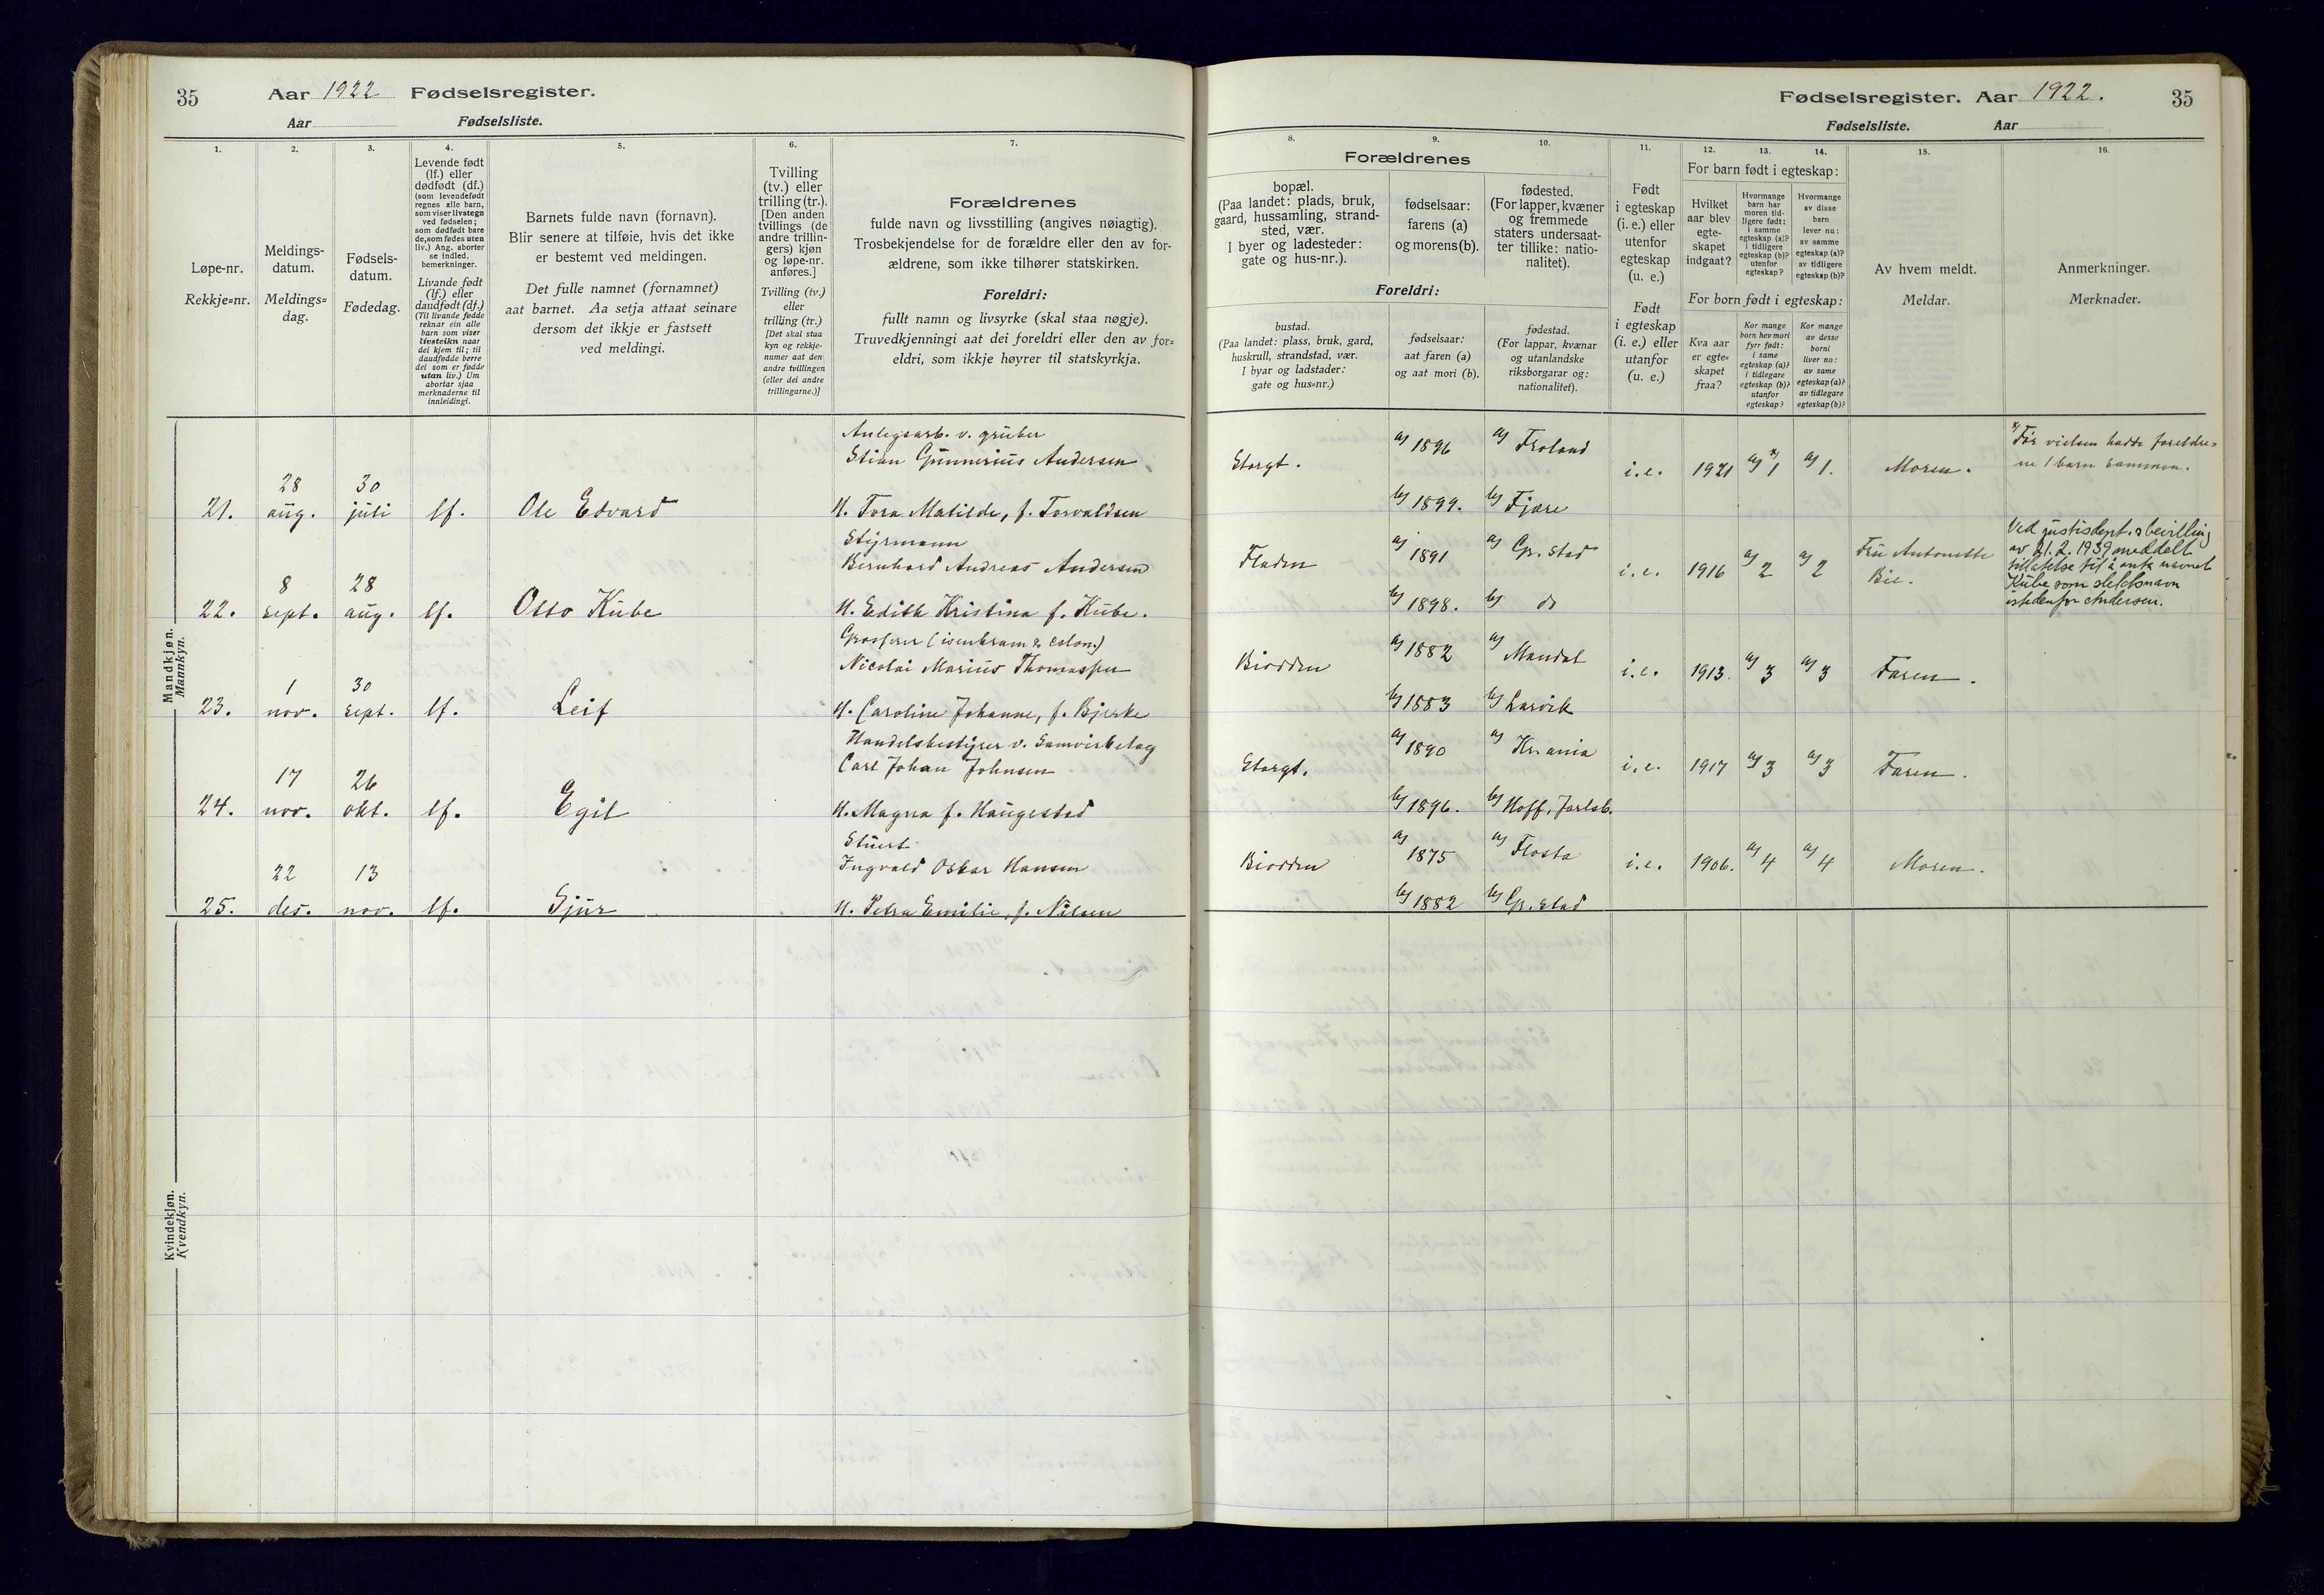 35 Aar 1922 Fødselsregister.
Aar Fødselsliste.
1. 2. 3. 4. 5. 6. 7.
Løpe-nr.
Rekkje=nr.
Meldings-
datum.
Meldings=
dag.
Fødsels-
datum.
Fødedag.
Levende født
(lf.) eller
dødfødt (df.)
(som levendefødt
regnes alle barn,
som viser livstegn
ved fødselen;
som dødfødt bare
de, som fødes uten
liv.) Ang. aborter
se indled.
bemerkninger.
Livande født
(lf.) eller
daudfødt (df.)
(Til livande fødde
reknar ein alle
barn som viser
livsteikn naar
dei kjem til; til
daudfødde berre
dei som er fødde
utan liv.) Um
abortar sjaa
merknaderne til
innleidingi.
Barnets fulde navn (fornavn).
Blir senere at tilføie, hvis det ikke
er bestemt ved meldingen.
Det fulle namnet (fornamnet)
aat barnet. Aa setja attaat seinare
dersom det ikkje er fastsett
ved meldingi.
Tvilling
(tv.) eller
trilling (tr.).
[Den anden
tvillings (de
andre trillin-
gers) kjøn
og løpe-nr.
anføres.]
Tvilling (tv.)
eller
trilling (tr.)
[Det skal staa
kyn og rekkje-
numer aat den
andre tvillingen
(eller dei andre
trillingarne.)]
Forældrenes
fulde navn og livsstilling (angives nøiagtig).
Trosbekjendelse for de forældre eller den av for-
ældrene, som ikke tilhører statskirken.
Foreldri:
fullt namn og livsyrke (skal staa nøgje).
Truvedkjenningi aat dei foreldri eller den av for=
eldri, som ikkje høyrer til statskyrkja.
Mandkjøn.
Mannkyn.
Anlegsarb. v. gruber
Stian Gunnerius Andersen
28 30
21. aug. juli lf. Ole Edvard H. Tora Matilde, f. Torvaldsen
Styrmann
Bernhard Andreas Andersen
8 28
22. sept. aug. lf. Otto Kube H. Edith Kristina f. Kube.
Grosserer (isenkram & colon.)
Nicolai Marius Thomassen
1 30
23. nov. sept. lf. Leif H. Caroline Johanne, f. Bjerke
Handelsbestyrer v. Samvirkelag
Carl Johan Johnsen
17 26
24. nov. okt. lf. Egil H. Magna f. Haugestad
Stuert
Ingvald Oskar Hansen
22 13
25. des. nov. lf. Sjur H. Petra Emilie, f. Nilsen
Kvindekjøn.
Kvendkyn.
Fødselsregister. Aar 1922. 35
Fødselsliste. Aar
8. 9. 10. 11. 12. 13. 14. 15. 16.
Forældrenes
bopæl.
(Paa landet: plads, bruk,
gaard, hussamling, strand-
sted, vær.
I byer og ladesteder:
gate og hus-nr.).
fødselsaar:
farens (a)
og morens (b).
fødested.
(For lapper, kvæner
og fremmede
staters undersaat-
ter tillike: natio-
nalitet).
Foreldri:
bustad.
(Paa landet: plass, bruk, gard,
huskrull, strandstad, vær.
I byar og ladstader:
gate og hus=nr.)
fødselsaar:
aat faren (a)
og aat mori (b).
fødestad.
(For lappar, kvænar
og utanlandske
riksborgarar og:
nationalitet).
Født
i egteskap
(i. e.) eller
utenfor
egteskap
(u. e.)
Født
i egteskap
(i. e.) eller
utanfor
(u. e.)
For barn født i egteskap:
Hvilket
aar blev
egte-
skapet
indgaat?
Hvormange
barn har
moren tid-
ligere født:
i samme
egteskap (a)?
i tidligere
egteskap (b)?
utenfor
egteskap?
Hvormange
av disse
barn
lever nu:
av samme
egteskap (a)?
av tidligere
egteskap (b)?
For born født i egteskap:
Kva aar
er egte=
skapet
fraa?
Kor mange
born hev mori
fyrr født:
i same
egteskap (a)?
i tidlegare
egteskap (b)?
utanfor
egteskap?
Kor mange
av desse
borni
liver no:
av same
egteskap (a)?
av tidlegare
egteskap (b)?
Av hvem meldt.
Meldar.
Anmerkninger.
Merknader.
Storgt. a) 1896 a) Froland i.e. 1921 a) x) 1 a) 1. Moren. x) Før vielsen hadde foreldre=
ne 1 barn sammen.
b) 1899. b) Fjære
Fladen a) 1891 a) Gr.stad i.e. 1916 a) 2 a) 2 Fru Antonette
Bie.
Ved justisdept.s bevilling
av 21.2.1939 meddelt
tillatelse til å anta navnet
Kube som slektsnavn
istedenfor Andersen.
b) 1898. b) do
Biodden a) 1882 a) Mandal i.e. 1913. a) 3 a) 3 Faren.
b) 1883 b) Larvik
Storgt. a) 1890 a) Kr.ania i.e. 1917 a) 3 a) 3 Faren.
b) 1896. b) Hoff, Jarlsb.
Biodden a) 1875 a) Flosta i.e. 1906. a) 4 a) 4 Moren.
b) 1882 b) Gr.stad